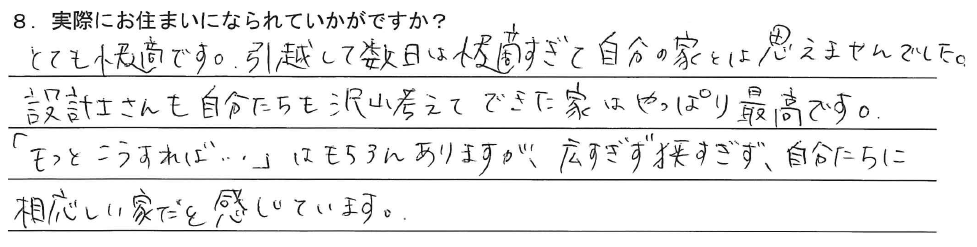 8. 実際にお住まいになられていかがですか？
とても快適です。引越して数日は快適すぎて自分の家とは思えませんでした。
設計士さんも自分たちも沢山考えてできた家はやっぱり最高です。
「もっとこうすれば…」はもちろんありますが、広すぎず狭すぎず、自分たちに
相応しい家だと感じています。